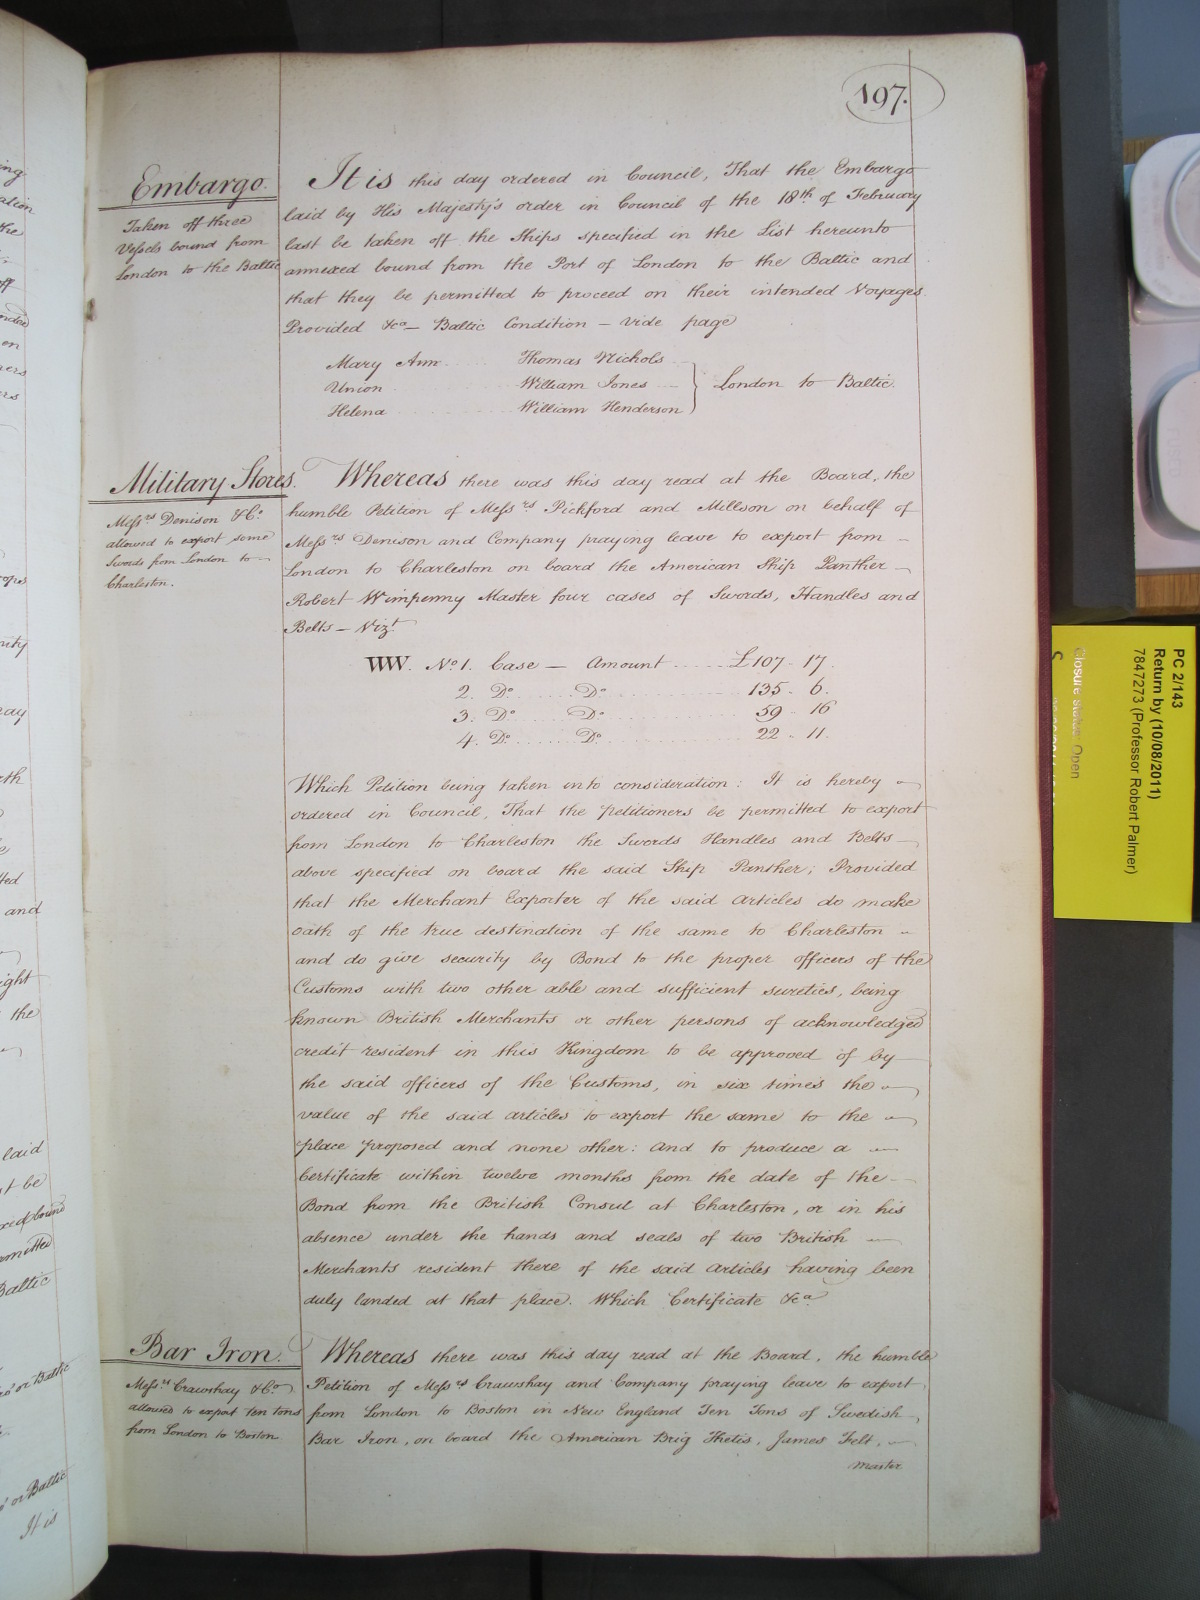 197.
Embargo.
Taken off three
Vessels bound from
London to the Baltic
It is this day ordered in Council, That the Embargo
laid by His Majesty's order in Council of the 18th of February
last be taken off the Ships specified in the List hereunto
annexed bound from the Port of London to the Baltic and
that they be permitted to proceed on their intended Voyages.
Provided &ca— Baltic Condition — vide page
Mary Ann ..... Thomas Nichols
Union ..... William Jones — } London to Baltic.
Helena ..... William Henderson
Military Stores.
Messrs Denison & Co.
allowed to export some
Swords from London to —
Charleston.
Whereas there was this day read at the Board, the
humble Petition of Messrs Pickford and Millson on behalf of
Messrs Denison and Company praying leave to export from —
London to Charleston on board the American Ship Panther —
Robert Wimpenny Master four cases of Swords, Handles and
Belts — Vizt.
WW. No. 1. Case — Amount ..... £107 - 17.
2. Do. ..... Do. ..... 135 - 6.
3. Do. ..... Do. ..... 59 - 16
4. Do. ..... Do. ..... 22 - 11.
Which Petition being taken into consideration: It is hereby
ordered in Council, That the petitioners be permitted to export
from London to Charleston the Swords Handles and Belts —
above specified on board the said Ship Panther; Provided
that the Merchant Exporter of the said Articles do make
oath of the true destination of the same to Charleston
and do give security by Bond to the proper officers of the
Customs with two other able and sufficient sureties, being
known British Merchants or other persons of acknowledged
credit resident in this Kingdom to be approved of by —
the said officers of the Customs, in six times the
value of the said articles to export the same to the
place proposed and none other: And to produce a
Certificate within twelve months from the date of the —
Bond from the British Consul at Charleston, or in his
absence under the hands and seals of two British —
Merchants resident there of the said Articles having been
duly landed at that place. Which Certificate &ca.
Bar Iron.
Messrs Crawshay & Co.
allowed to export ten tons
from London to Boston.
Whereas there was this day read at the Board, the humble
Petition of Messrs Crawshay and Company praying leave to export
from London to Boston in New England Ten Tons of Swedish
Bar Iron, on board the American Brig Thetis, James Felt, —
Master
PC 2/143
Return by (10/08/2011)
7847273 (Professor Robert Palmer)
Closure status: Open
the
off
en
and
ight
the
laid
t be
Baltic
or Baltic
or Baltic
It is